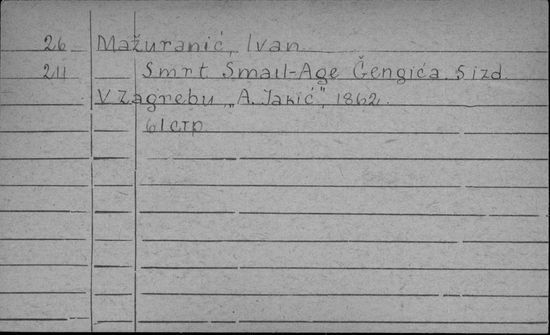 26 Mažuranić, Ivan
24 Smrt Smail-Age Čengića 5 izd.
V Zagrebu, „A. Jakić", 1862.
61 стр.